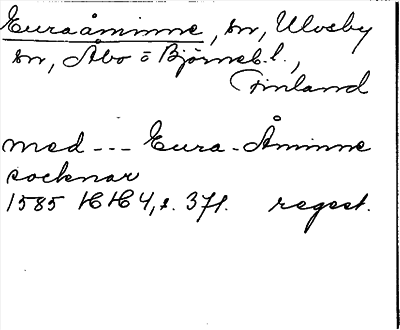 Euraåminne, sn, Ulvsby
sn, Åbo o Björneb. l.,
Finland
med --- Eura-Åminne
socknar
1585 HH 4, s. 371. regest.